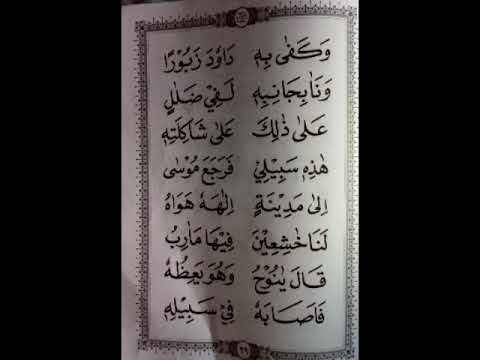 وَكَفٰى بِهٖ دَاوٗدَ زَبُوْرًا
وَنَاٰبِجَانِبِهٖ لَفِيْ ضَلٰلٍ
عَلٰى ذٰلِكَ عَلٰى شَاكِلَتِهٖ
هٰذِهٖ سَبِيْلِيْ فَرَجَعَ مُوْسٰى
اِلٰى مَدِيْنَةٍ اِلٰهَهٗ هَوَاهُ
لَنَا خٰشِعِيْنَ فِيْهَا مَاٰرِبُ
قَالَ يٰنُوْحُ وَهُوَ يَعِظُهٗ
فَاَصَابَهٗ فِيْ سَبِيْلِهٖ
٢٩